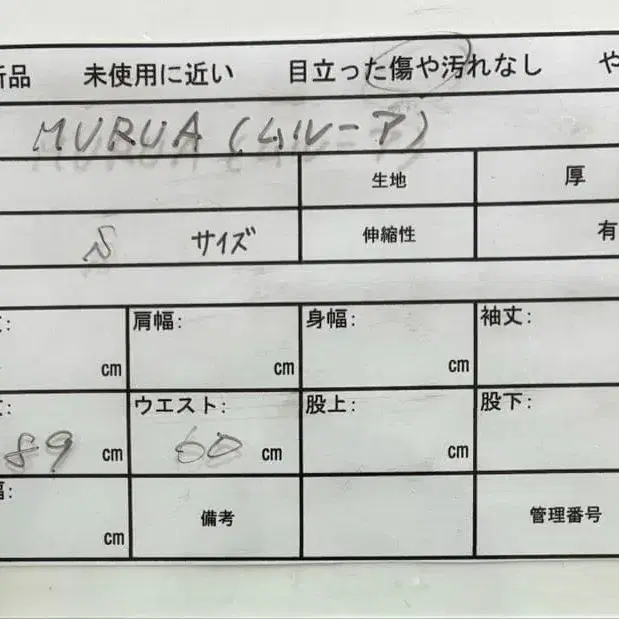 新品 未使用に近い 目立った傷や汚れなし や
MURUA (ムルーア)
生地 厚
S サイズ 伸縮性 有
丈: 肩幅: 身幅: 袖丈:
cm cm cm
丈: ウエスト: 股上: 股下:
89 cm 60 cm cm
幅: 備考 管理番号
cm